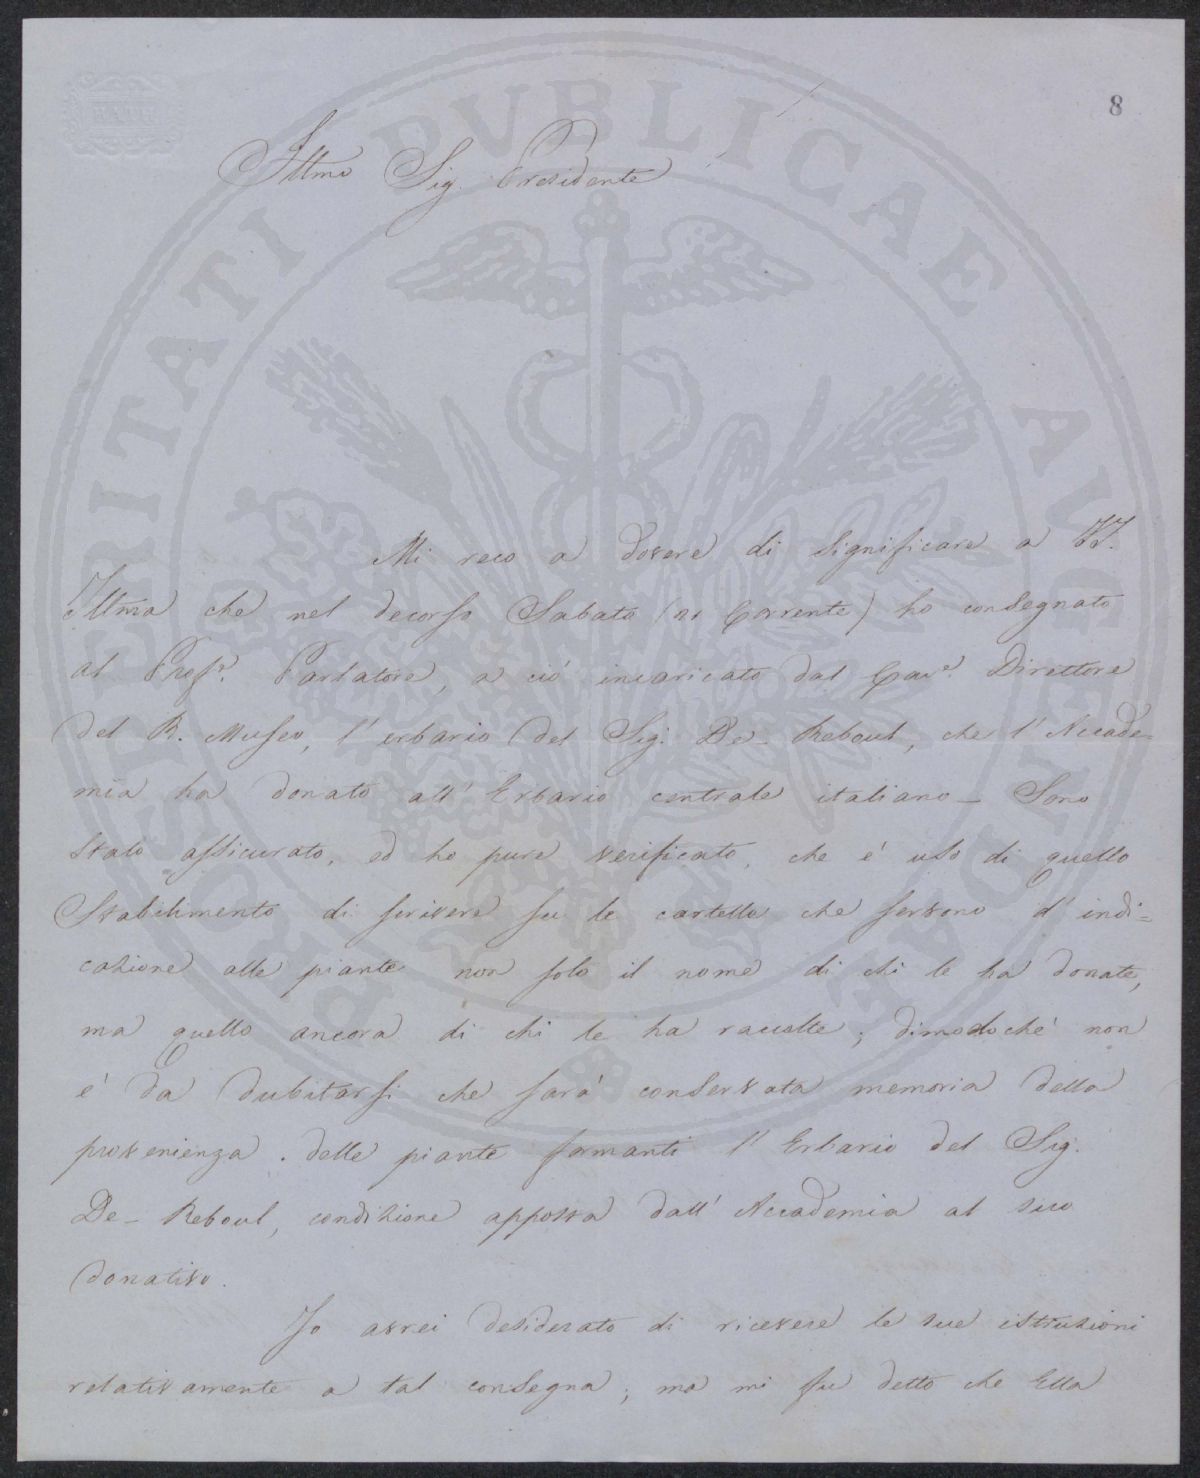 8
Illmo Sig. Presidente
Mi reco a dovere di significare a VS.
Illma che nel decorso Sabato (20 Corrente) ho consegnato
al Profe. Parlatore, a ciò incaricato dal Cave. Direttore
del R. Museo, l' erbario del Sig. De- Reboul, che l' Accade=
mia ha donato all' Erbario centrale italiano_ Sono
stato assicurato, ed ho pure verificato, che è uso di quello
Stabilimento di scrivere su le cartelle che servono d' indi=
cazione alle piante non solo il nome di chi le ha donate,
ma quello ancora di chi le ha raccolte; dimodochè non
è da dubitarsi che sarà conservata memoria della
provenienza delle piante formanti l' Erbario del Sig.
De- Reboul, condizione apposta dall' Accademia al suo
donativo.
Io avrei desiderato di ricevere le sue istruzioni
relativamente a tal consegna; ma mi fu detto che Ella
PROSPERITATI PVBLICAE AVGENDAE